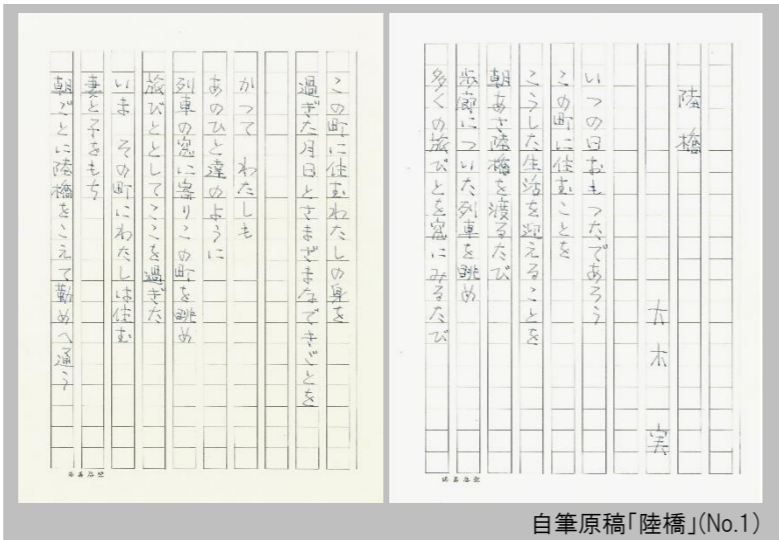 陸橋
大木実
いつの日おもつたであろう
この町に住むことを
こうした生活を迎えることを
朝あさ陸橋を渡るたび
歩廊についた列車を眺め
多くの旅びとを窓にみるたび
この町に住むわたしの身を
過ぎた月日とさまざまなできごとを
かつて わたしも
あのひと達のように
列車の窓に寄りこの町を眺め
旅びととしてここを過ぎた
いま その町にわたしは住む
妻と子をもち
朝ごとに陸橋をこえて勤めへ通う
自筆原稿「陸橋」(No.1)